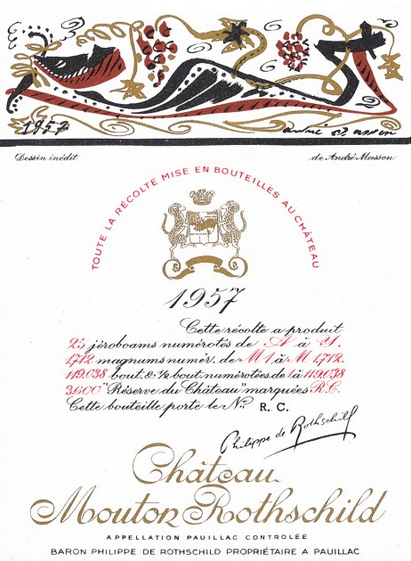 1957
andré masson
Dessin inédit
de André Masson
TOUTE LA RÉCOLTE MISE EN BOUTEILLES AU CHÂTEAU
1957
Cette récolte a produit
25 jéroboams numérotés de A à Y.
1.712 magnums numér. de M 1 à M 1.712.
119.038 bout. & ½ bout. numérotées de 1 à 119.038
3.600 "Réserve du Château" marquées R.C.
Cette bouteille porte le No R. C.
Philippe de Rothschild
Château
Mouton Rothschild
APPELLATION PAUILLAC CONTROLÉE
BARON PHILIPPE DE ROTHSCHILD PROPRIÉTAIRE A PAUILLAC